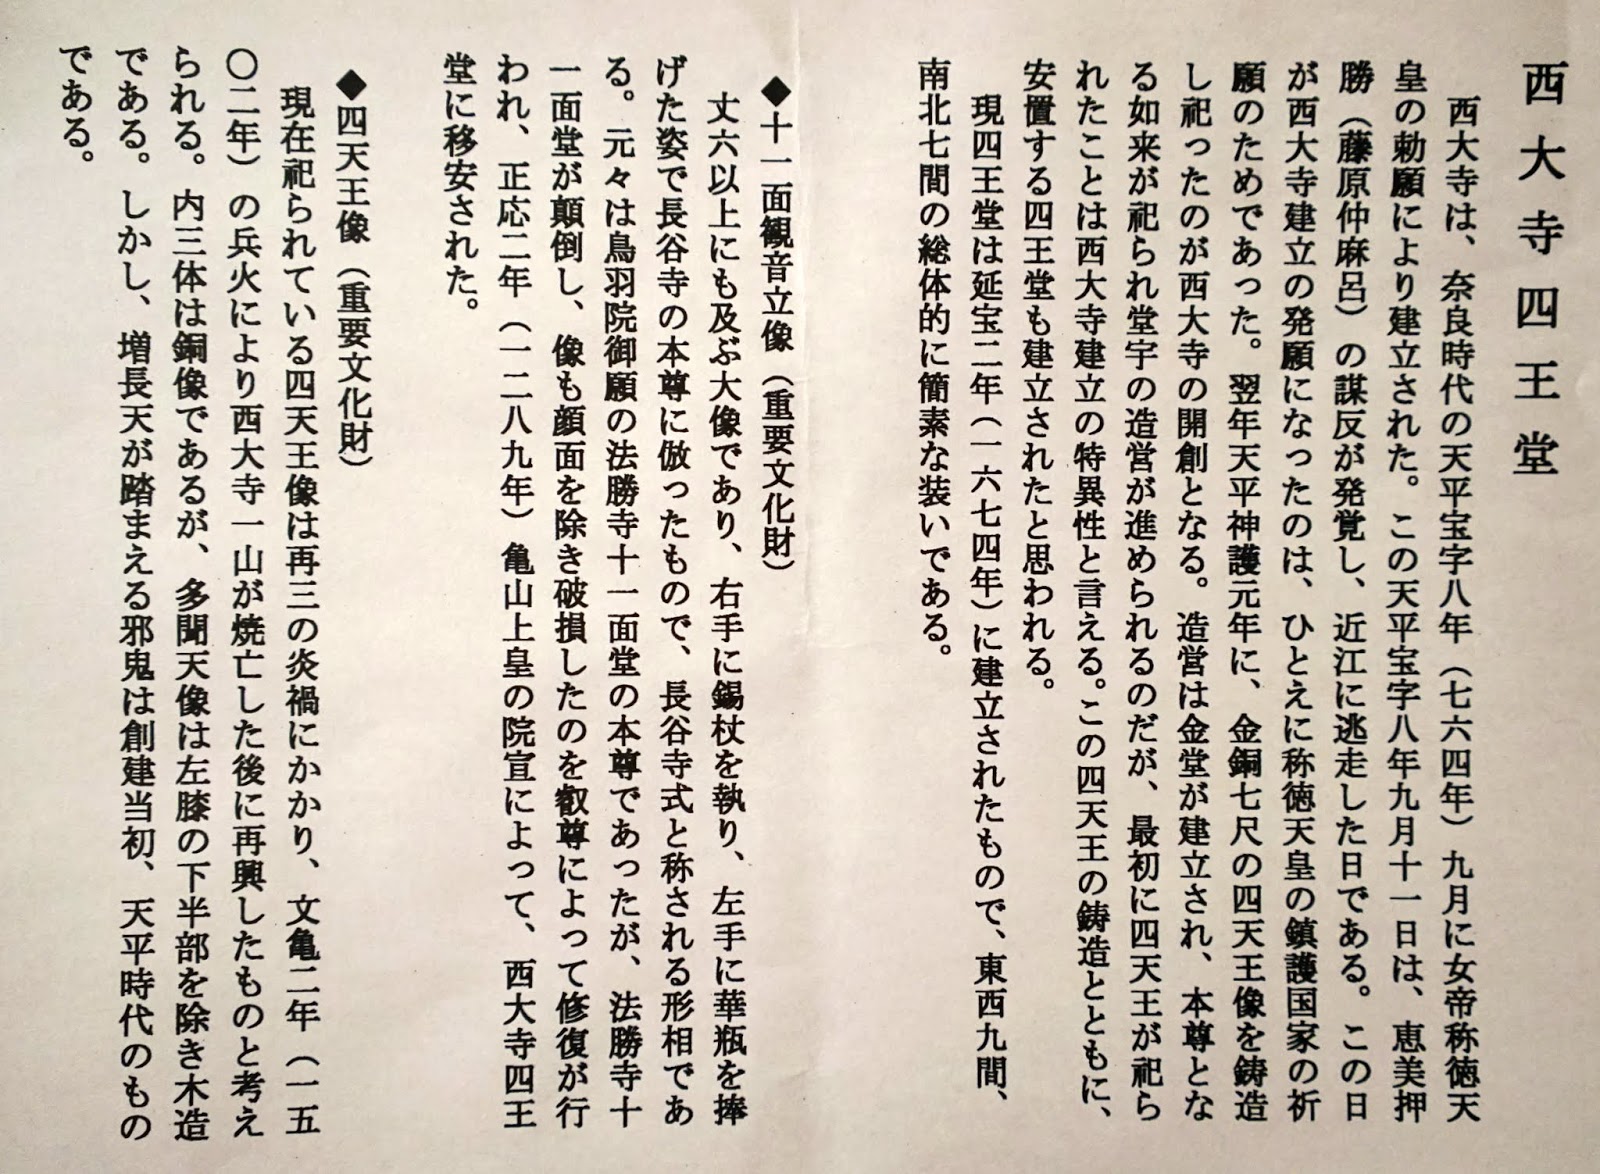 西大寺四王堂
西大寺は、奈良時代の天平宝字八年（七六四年）九月に女帝称徳天
皇の勅願により建立された。この天平宝字八年九月十一日は、恵美押
勝（藤原仲麻呂）の謀反が発覚し、近江に逃走した日である。この日
が西大寺建立の発願になったのは、ひとえに称徳天皇の鎮護国家の祈
願のためであった。翌年天平神護元年に、金銅七尺の四天王像を鋳造
し祀ったのが西大寺の開創となる。造営は金堂が建立され、本尊とな
る如来が祀られ堂宇の造営が進められるのだが、最初に四天王が祀ら
れたことは西大寺建立の特異性と言える。この四天王の鋳造とともに、
安置する四王堂も建立されたと思われる。
現四王堂は延宝二年（一六七四年）に建立されたもので、東西九間、
南北七間の総体的に簡素な装いである。
◆十一面観音立像（重要文化財）
丈六以上にも及ぶ大像であり、右手に錫杖を執り、左手に華瓶を捧
げた姿で長谷寺の本尊に倣ったもので、長谷寺式と称される形相であ
る。元々は鳥羽院御願の法勝寺十一面堂の本尊であったが、法勝寺十
一面堂が顛倒し、像も顔面を除き破損したのを叡尊によって修復が行
われ、正応二年（一二八九年）亀山上皇の院宣によって、西大寺四王
堂に移安された。
◆四天王像（重要文化財）
現在祀られている四天王像は再三の炎禍にかかり、文亀二年（一五
〇二年）の兵火により西大寺一山が焼亡した後に再興したものと考え
られる。内三体は銅像であるが、多聞天像は左膝の下半部を除き木造
である。しかし、増長天が踏まえる邪鬼は創建当初、天平時代のもの
である。